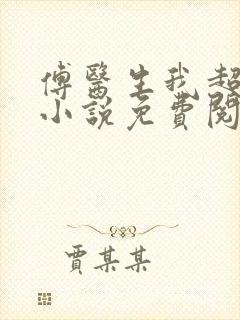 傅醫生我超
小說免費閱
賈某某